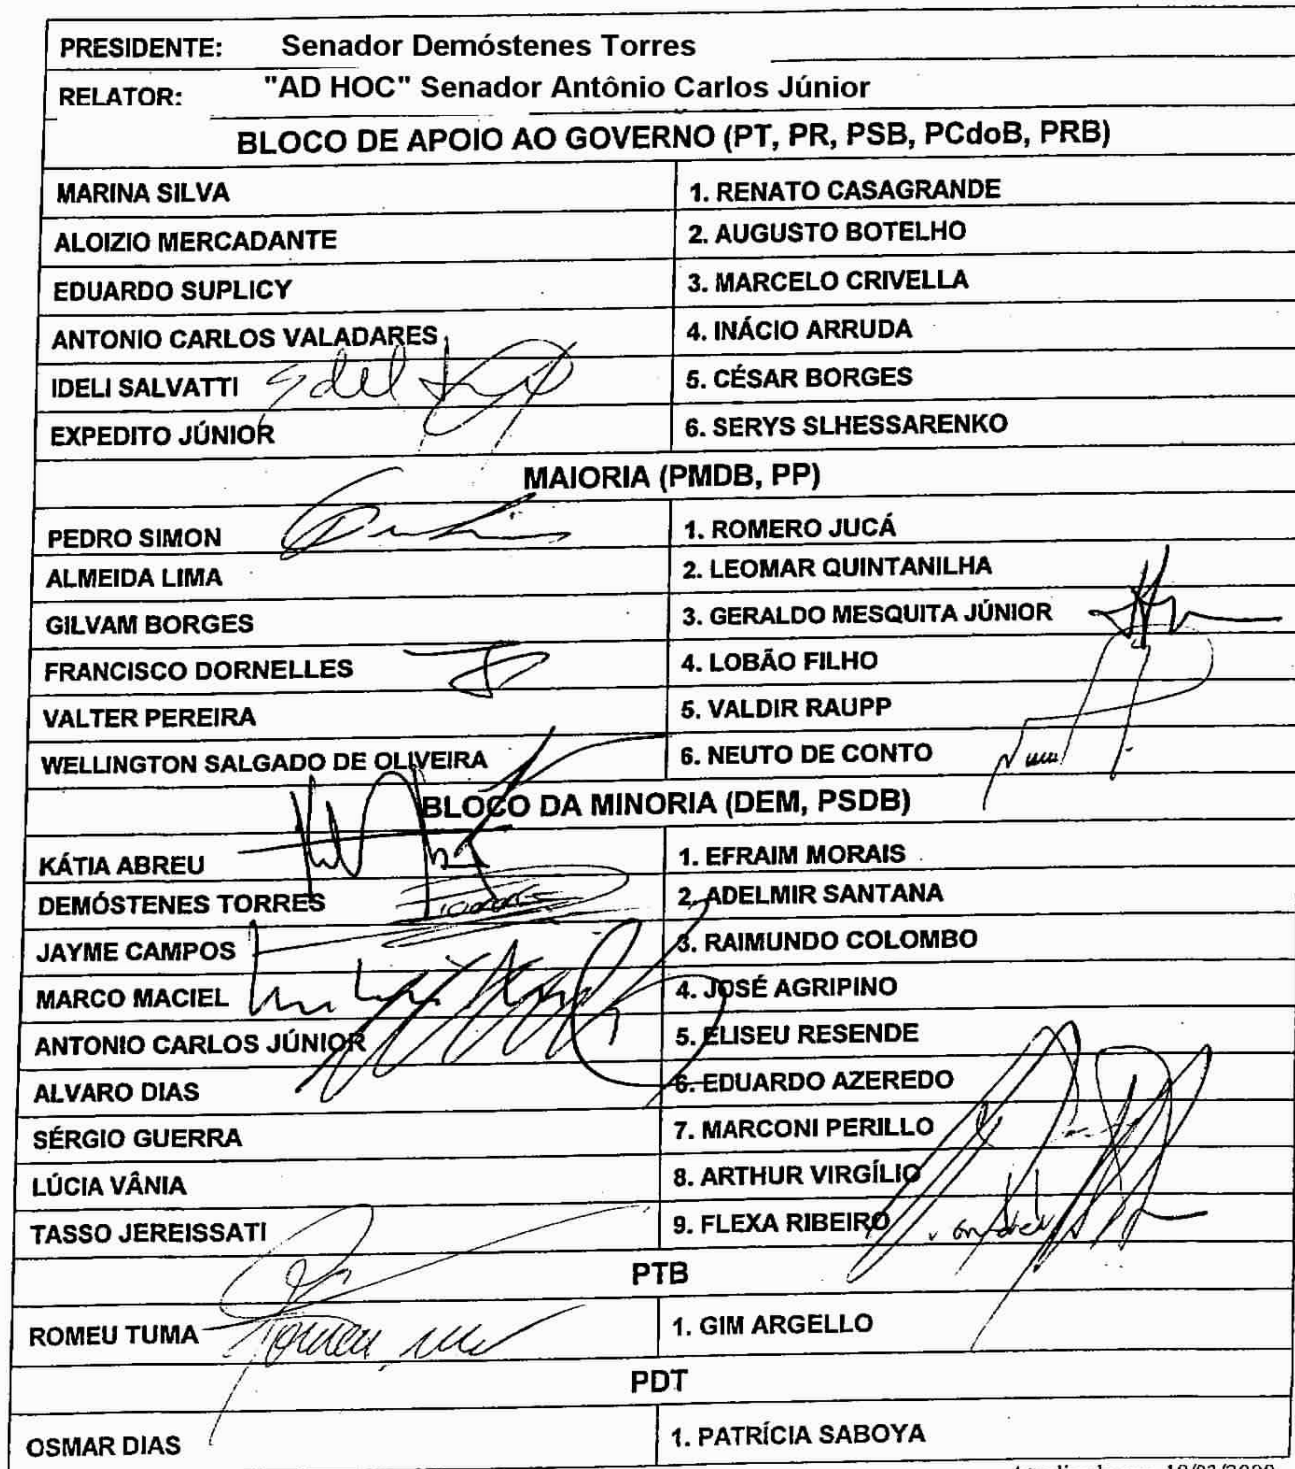 PRESIDENTE: Senador Demóstenes Torres
RELATOR: "AD HOC" Senador Antônio Carlos Júnior
BLOCO DE APOIO AO GOVERNO (PT, PR, PSB, PCdoB, PRB)
MARINA SILVA 1. RENATO CASAGRANDE
ALOIZIO MERCADANTE 2. AUGUSTO BOTELHO
EDUARDO SUPLICY 3. MARCELO CRIVELLA
ANTONIO CARLOS VALADARES 4. INÁCIO ARRUDA
IDELI SALVATTI 5. CÉSAR BORGES
EXPEDITO JÚNIOR 6. SERYS SLHESSARENKO
MAIORIA (PMDB, PP)
PEDRO SIMON 1. ROMERO JUCÁ
ALMEIDA LIMA 2. LEOMAR QUINTANILHA
GILVAM BORGES 3. GERALDO MESQUITA JÚNIOR
FRANCISCO DORNELLES 4. LOBÃO FILHO
VALTER PEREIRA 5. VALDIR RAUPP
WELLINGTON SALGADO DE OLIVEIRA 6. NEUTO DE CONTO
BLOCO DA MINORIA (DEM, PSDB)
KÁTIA ABREU 1. EFRAIM MORAIS
DEMÓSTENES TORRES 2. ADELMIR SANTANA
JAYME CAMPOS 3. RAIMUNDO COLOMBO
MARCO MACIEL 4. JOSÉ AGRIPINO
ANTONIO CARLOS JÚNIOR 5. ELISEU RESENDE
ALVARO DIAS 6. EDUARDO AZEREDO
SÉRGIO GUERRA 7. MARCONI PERILLO
LÚCIA VÂNIA 8. ARTHUR VIRGÍLIO
TASSO JEREISSATI 9. FLEXA RIBEIRO
PTB
ROMEU TUMA 1. GIM ARGELLO
PDT
OSMAR DIAS 1. PATRÍCIA SABOYA